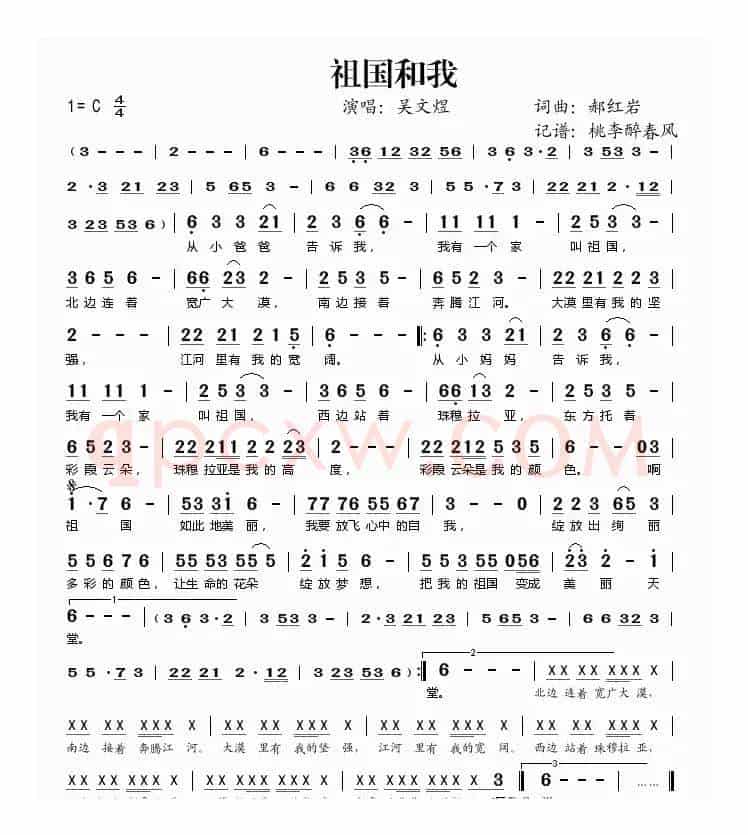 祖国和我
1= C 4/4 演唱：吴文煜 词曲：郝红岩
记谱：桃李醉春风
( 3 - - - | 2 - - - | 6 - - - | 36 12 32 56 | 3 6 3·2 | 3 53 3 - |
2 ·3 21 23 | 5 65 3 - | 6 6 32 3 | 5 5 ·7 3 | 22 21 2 ·12 |
3 23 53 6 ) | 6 3 3 21 | 2 3 6 6 - | 11 11 1 - | 2 5 3 3 - |
从 小 爸 爸 告 诉 我， 我有 一个 家 叫 祖 国，
3 6 6 5 - | 66 23 2 - | 2 3 5 5 - | 6 5 2 3 - | 22 21 21 23 |
北 边 连 着 宽广 大 漠， 南 边 接 着 奔 腾 江 河。 大漠 里有 我的 坚
2 - - - | 22 21 2 1 2 5 | 6 - - - |: 6 3 3 21 | 2 3 6 6 - |
强， 江河 里有 我 的 宽 阔。 从 小 妈 妈 告 诉 我，
11 11 1 - | 2 5 3 3 - | 3 6 6 5 - | 66 13 2 - | 2 3 5 5 - |
我有 一个 家 叫 祖 国， 西 边 站 着 珠穆 拉 亚， 东 方 托 着
6 5 2 3 - | 22 211 2 2 23 | 2 - - - | 22 212 5 35 | 6 - - 03 |
彩 霞 云 朵， 珠穆 拉亚是 我 的 高 度， 彩霞 云朵是 我 的 颜 色。 啊
1 ·7 6 - | 53 31 6 - | 77 76 55 67 | 3 - - - | 2 2 3 65 3 |
祖 国 如此 地美 丽， 我要 放飞 心中 的自 我， 绽 放 出 绚 丽
5 5 6 7 6 | 55 53 55 5 | 2 1 5 6 - | 5 5 53 5 056 | 23 2 - 1 |
多 彩 的 颜 色， 让生 命的 花朵 绽 放 梦 想， 把 我 的祖 国 变成 美 丽 天
1
6 - - - | (3 6 3·2 | 3 53 3 - | 2 ·3 21 23 | 5 65 3 - | 6 6 32 3 |
堂。
5 5 ·7 3 | 22 21 2 ·12 | 3 23 53 6 ) :| 6 - - - | X X X X X X X X |
2
堂。 北边 连着 宽广大 漠，
南边 接着 奔腾江 河。 大漠 里有 我的坚 强， 江河 里有 我的宽 阔。 西边 站着 珠穆拉 亚，
3
3 :| 6 - - - | …… ||